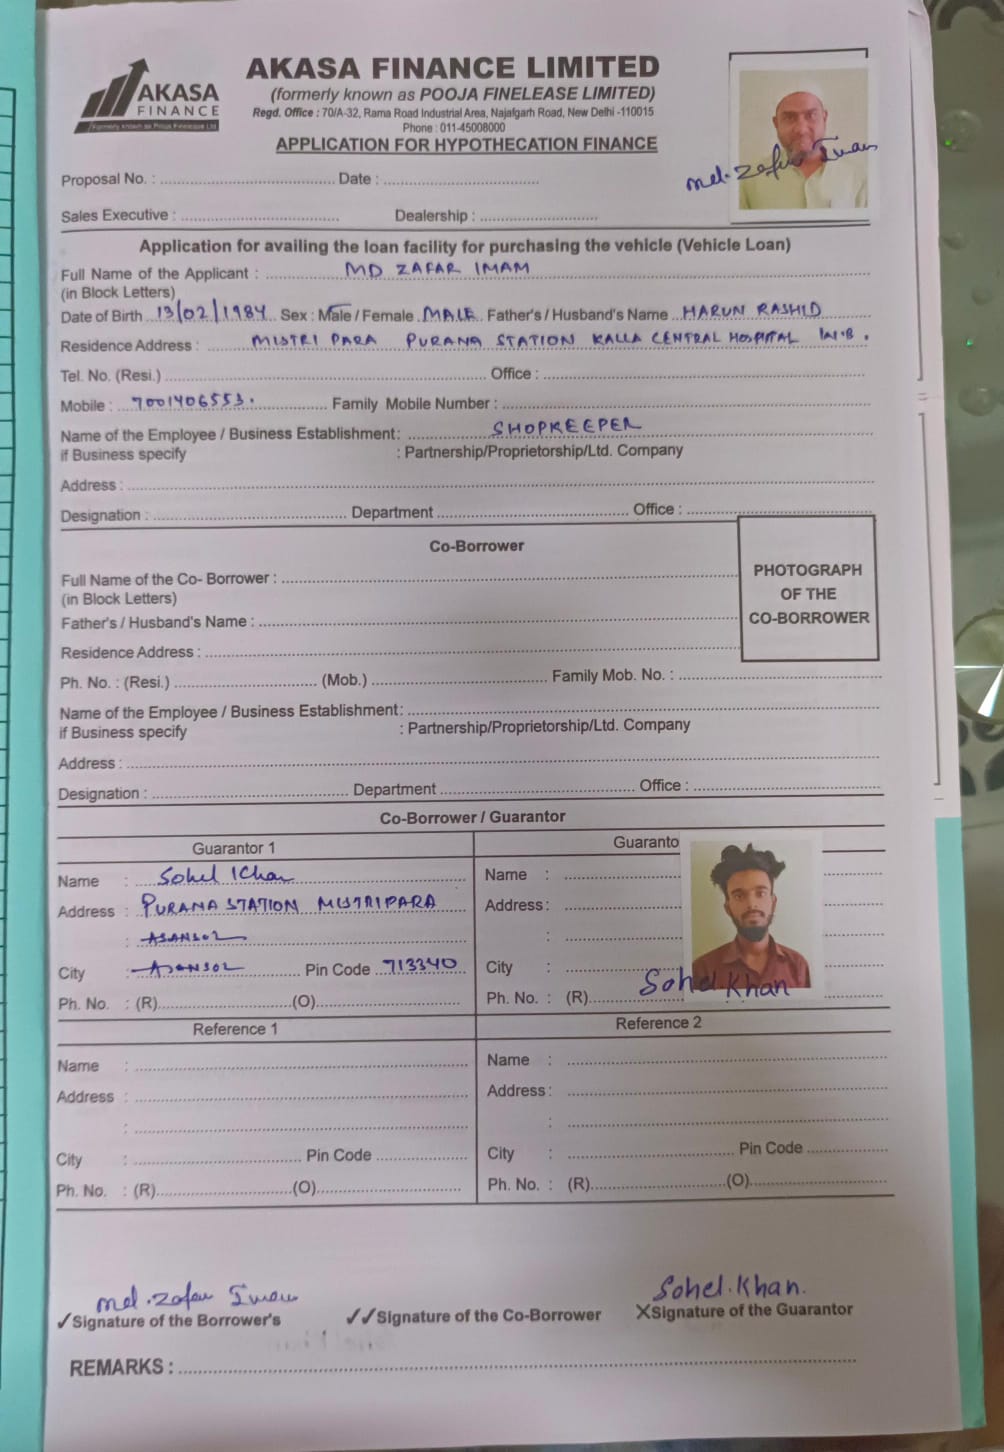 AKASA
FINANCE
Formerly known as Pooja Finelease Ltd
AKASA FINANCE LIMITED
(formerly known as POOJA FINELEASE LIMITED)
Regd. Office : 70/A-32, Rama Road Industrial Area, Najafgarh Road, New Delhi -110015
Phone : 011-45008000
APPLICATION FOR HYPOTHECATION FINANCE
md. Zafar Imam
Proposal No. : Date :
Sales Executive : Dealership :
Application for availing the loan facility for purchasing the vehicle (Vehicle Loan)
Full Name of the Applicant : MD ZAFAR IMAM
(in Block Letters)
Date of Birth 13/02/1984 Sex : Male / Female MALE Father's / Husband's Name HARUN RASHID
Residence Address : MISTRI PARA PURANA STATION KALLA CENTRAL HOSPITAL W.B.
Tel. No. (Resi.) Office :
Mobile : 7001406553. Family Mobile Number :
Name of the Employee / Business Establishment: SHOPKEEPER
if Business specify : Partnership/Proprietorship/Ltd. Company
Address :
Designation : Department Office :
Co-Borrower
PHOTOGRAPH
OF THE
CO-BORROWER
Full Name of the Co- Borrower :
(in Block Letters)
Father's / Husband's Name :
Residence Address :
Ph. No. : (Resi.) (Mob.) Family Mob. No. :
Name of the Employee / Business Establishment:
if Business specify : Partnership/Proprietorship/Ltd. Company
Address :
Designation : Department Office :
Co-Borrower / Guarantor
Guarantor 1
Name : Sohel Khan
Address : PURANA STATION MISTRIPARA
: ASANSOL
City : ASANSOL Pin Code 713340
Ph. No. : (R) (O)
Guaranto
Name :
Address :
:
City :
Ph. No. : (R)
Sohel Khan
Reference 1
Name :
Address :
:
City : Pin Code
Ph. No. : (R) (O)
Reference 2
Name :
Address :
:
City : Pin Code
Ph. No. : (R) (O)
md. Zafar Imam
✓Signature of the Borrower's
✓✓Signature of the Co-Borrower
Sohel. Khan.
XSignature of the Guarantor
REMARKS :